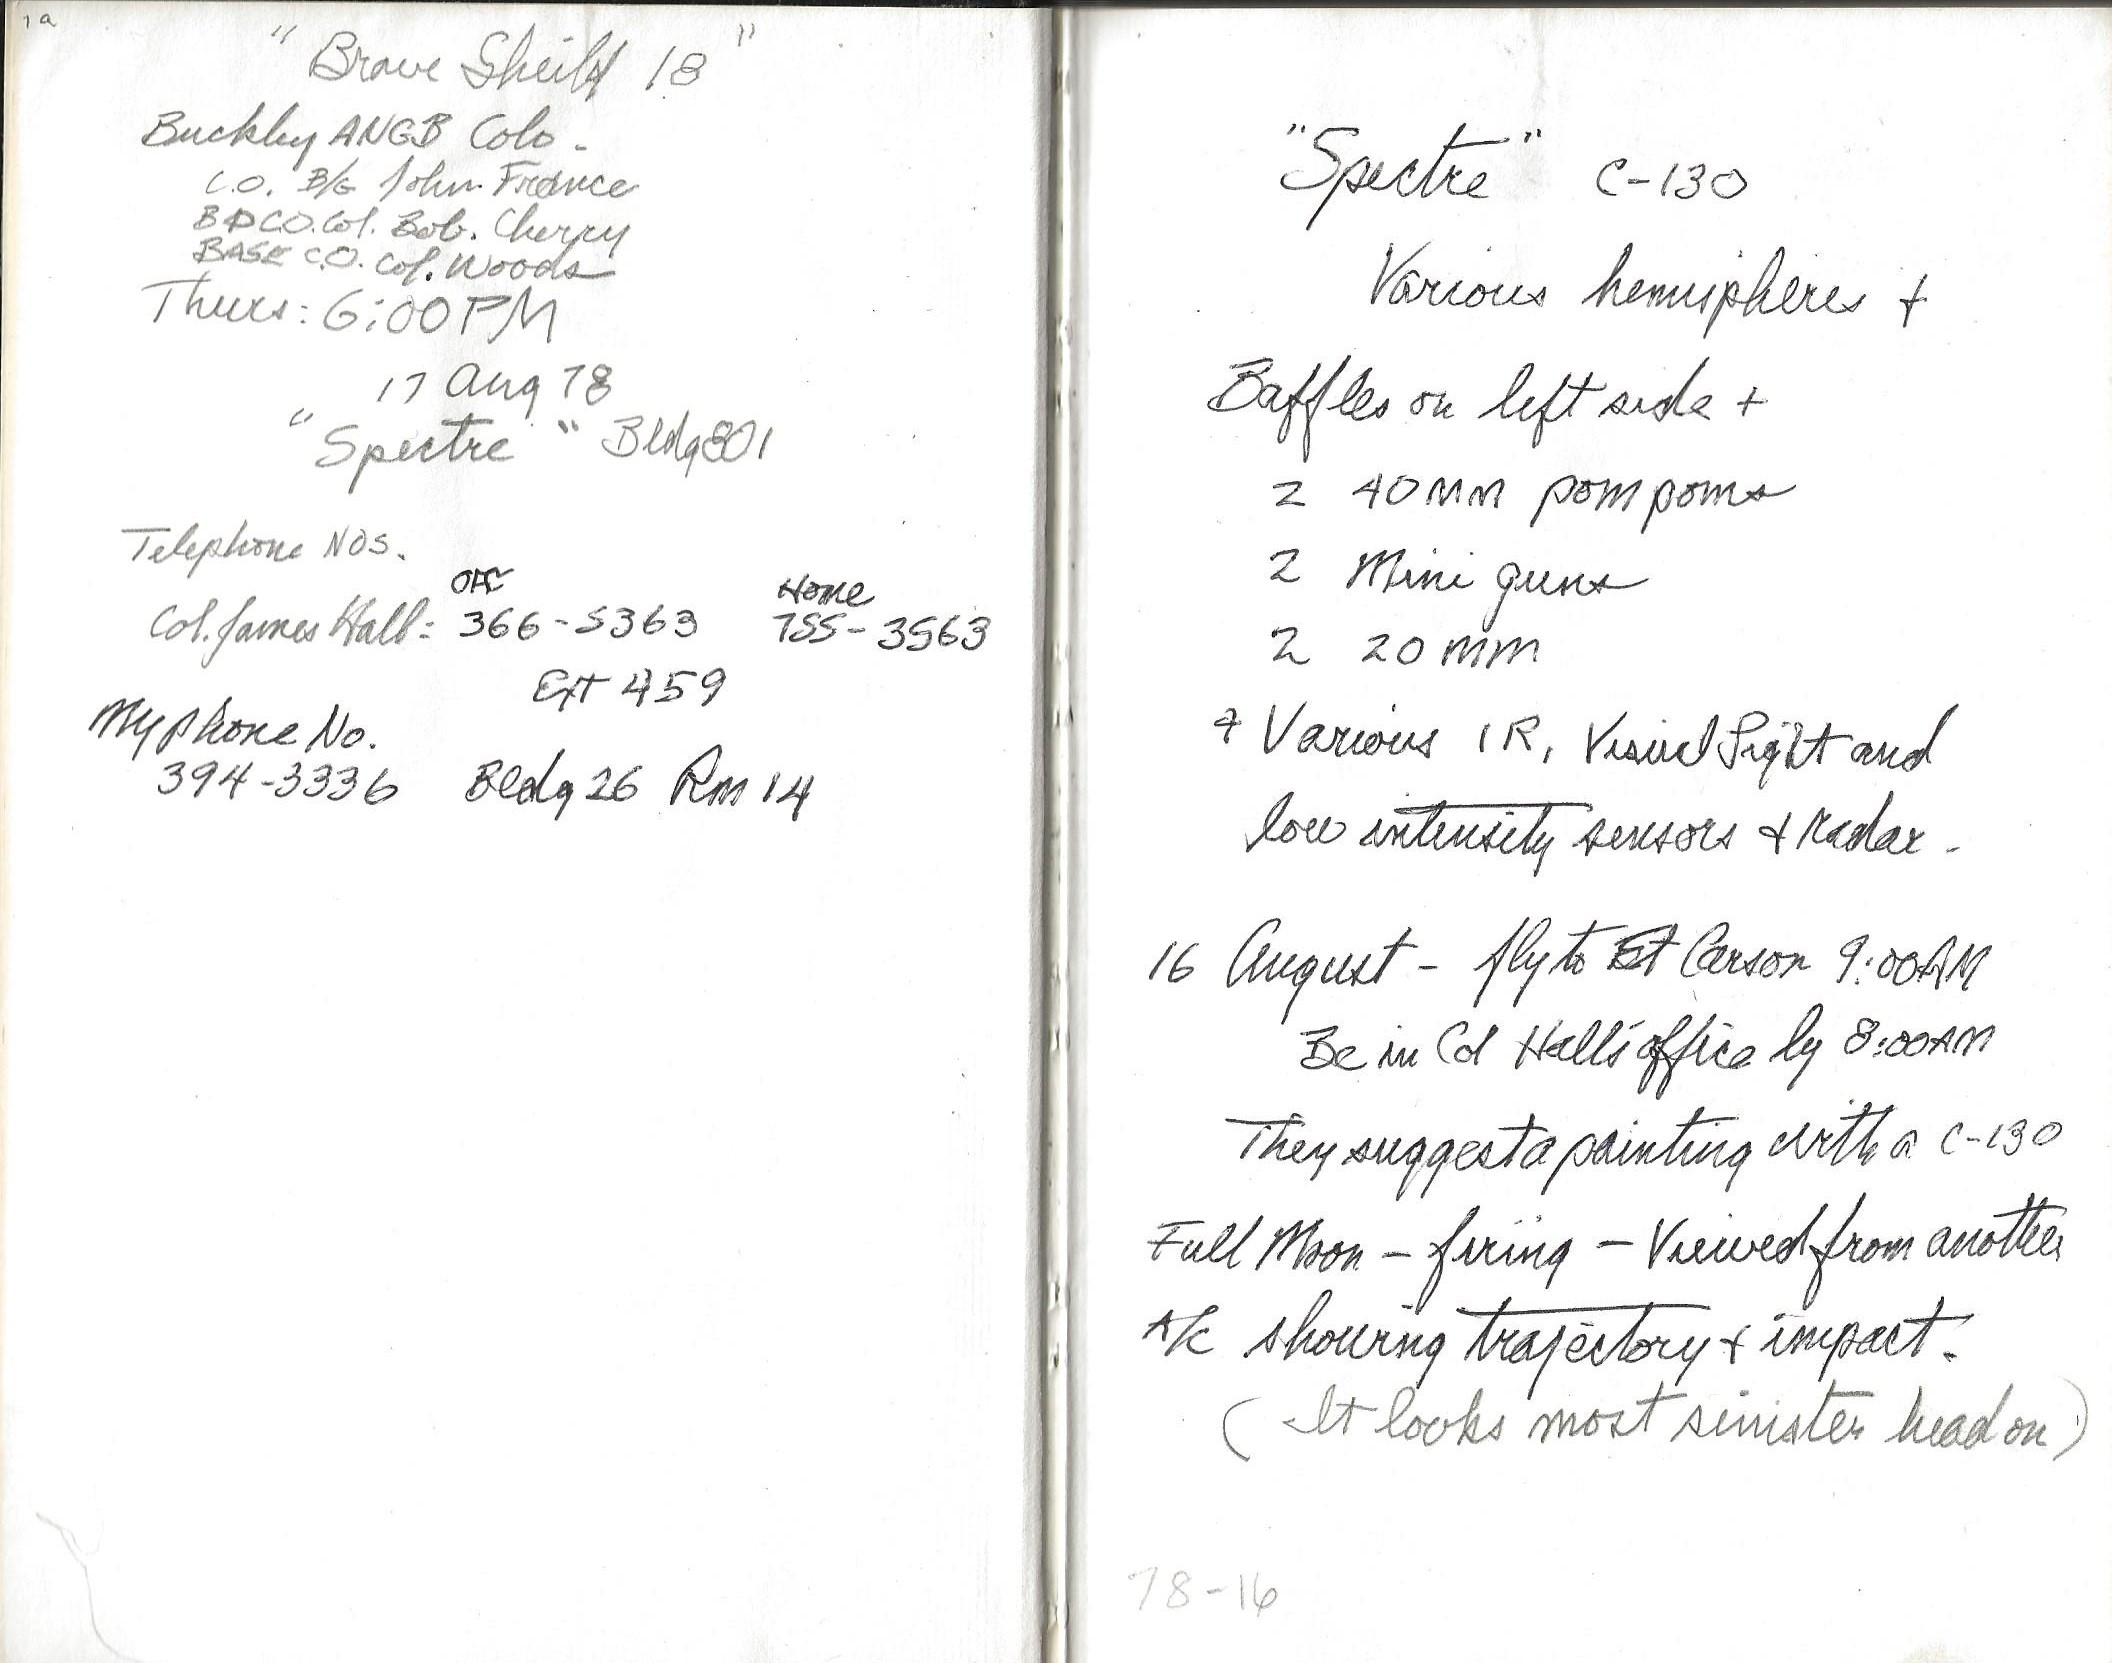 1a
"Brave Sheild 18"
Buckley ANGB Colo.
C.O. B/G John France
BDCO. Col. Bob. Cherry
BASE C.O. Col. Woods
Thurs: 6:00 PM
17 Aug 78
"Spectre" Bldg 801
Telephone NOS.
OFC Home
Col. James Hall: 366-5363 755-3563
Ext 459
My phone No.
394-3336 Bldg 26 Rm 14
"Spectre" C-130
Various hemispheres +
Baffles on left side +
2 40mm pom poms
2 Mini guns
2 20mm
+ Various IR, Visual Sight and
low intensity sensors + radar -
16 August - fly to Ft Carson 9:00AM
Be in Col Hall's office by 8:00AM
They suggest a painting with a C-130
Full Moon - firing - Viewed from another
A/C showing trajectory + impact.
(It looks most sinister head on)
78-16